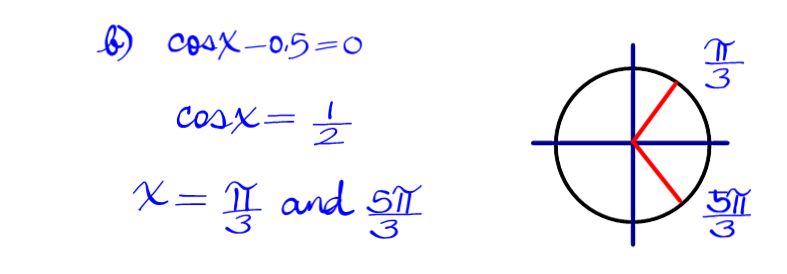 b) cosx-0.5=0
cosx = 1/2
x = π/3 and 5π/3
π/3
5π/3